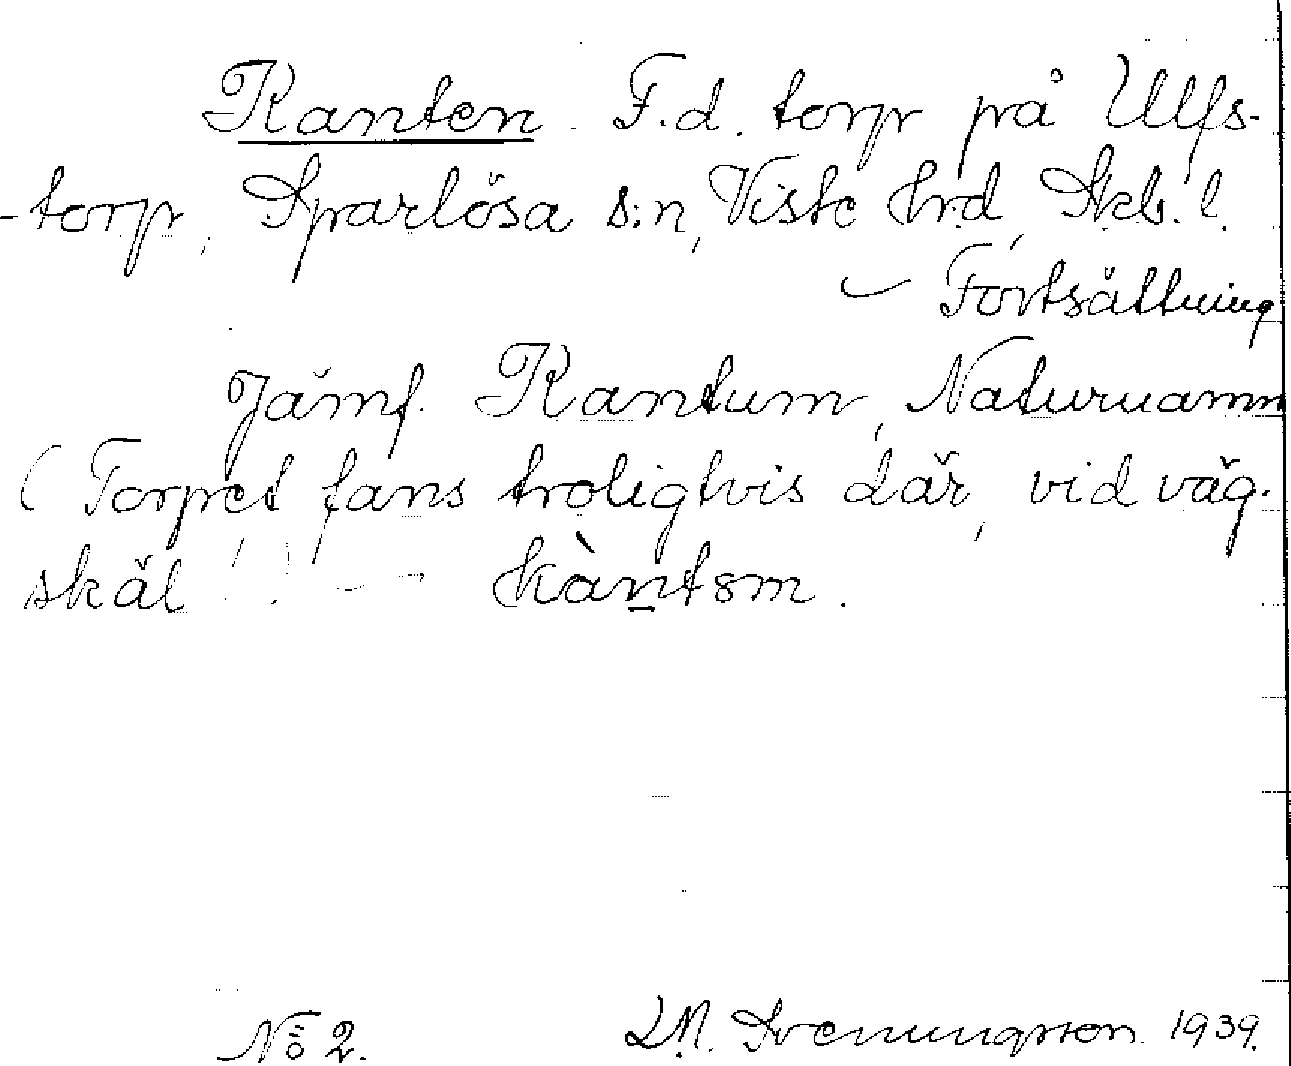 Kanten. F.d. torp på Ulfs-
-torp, Sparlösa s:n, Viste hrd, Skb. l.
— Fortsättning
Jämf. Kantum, Naturnamn
(Torpet fans troligtvis där, vid väg-
skäl!). — kàntsm.
No 2. Sveningsson. 1939.